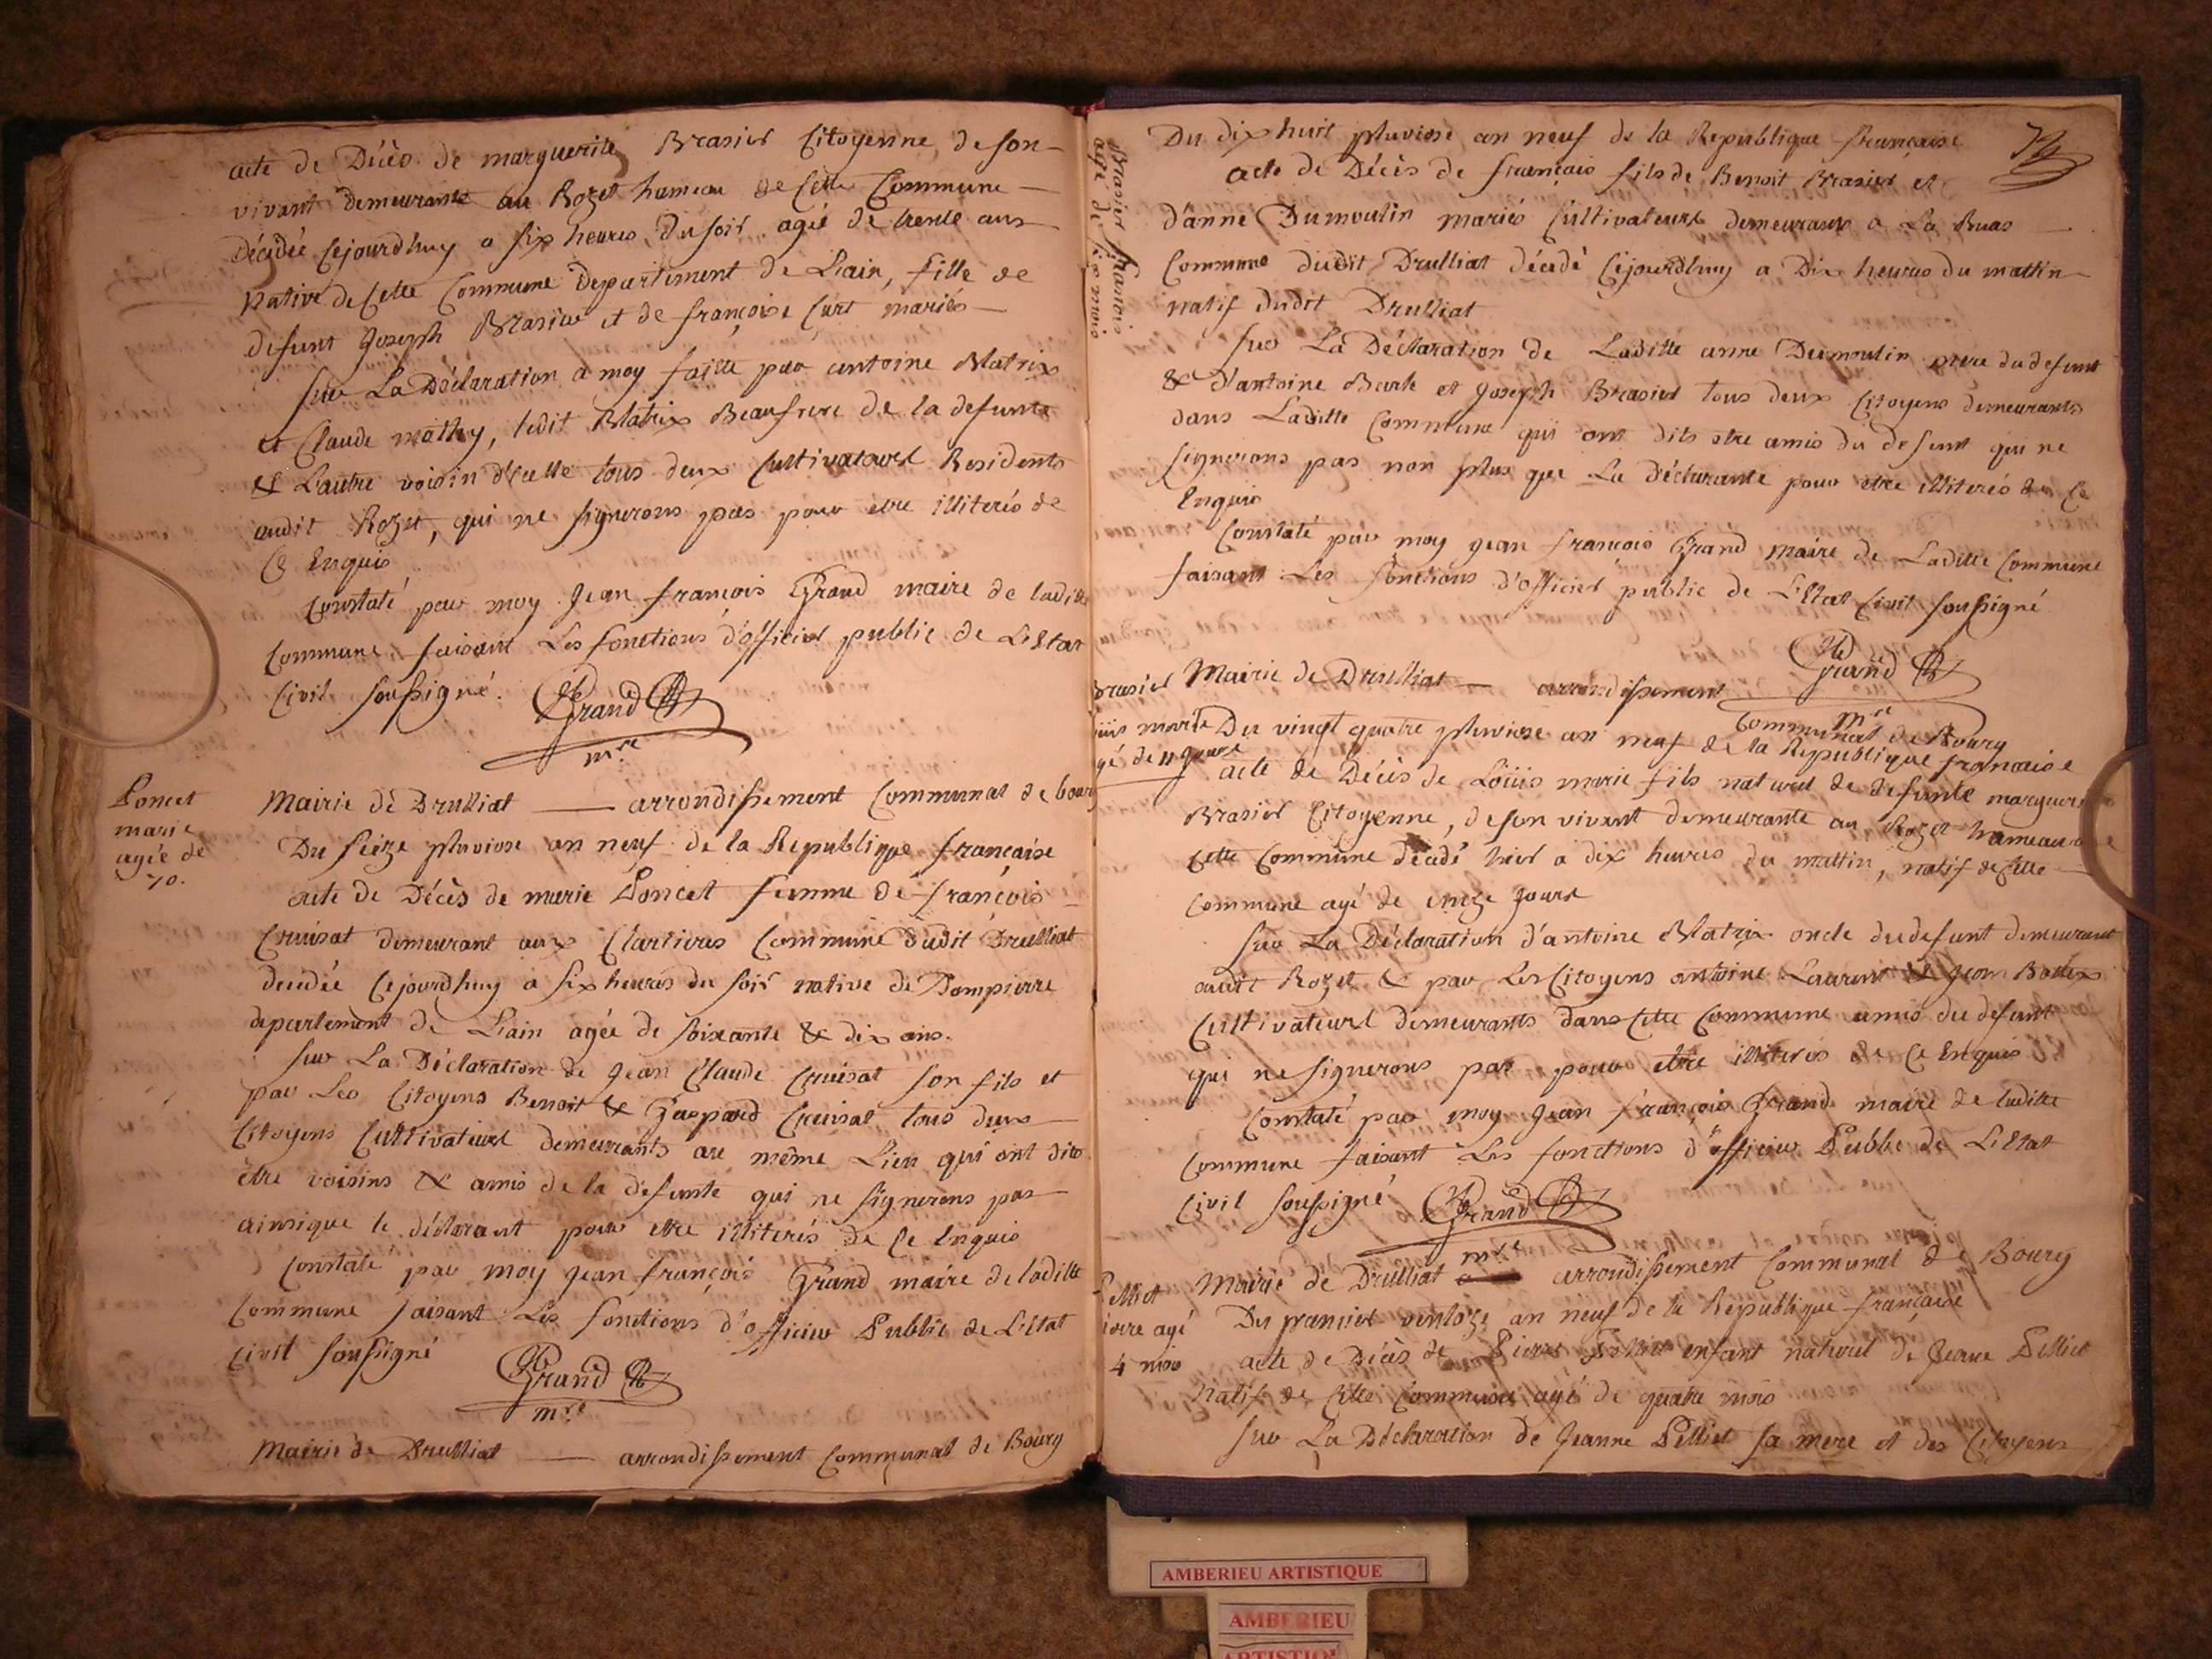 acte de Décès de marguerite Brasier Citoyenne, de son
vivant demeurante au Rozet hameau de Cette Commune
Décédée Cejourdhuy a six heures du soir agée de trente ans
Native de Cette Commune Departement de Lain, fille de
defunt Joseph Brasier et de françoise Curt mariés
sur La Déclaration a moy faitte par antoine Blatrix
et Claude mathy, ledit Blatrix Beaufrere de la defunte
& L'autre voisin d'icelle tous deux Cultivateurs Residents
audit Rozet, qui ne signerons pas pour etre illiterés de
Ce Enquis
Constaté par moy Jean françois Grand maire de laditte
Commune faisant Les fonctions d'officier public de L'Etat
Civil soussigné. Grand
mre
Poncet
marie
agée de
70.
Mairie de Drulliat arrondissement Communal de bourg
Du seize pluviose an neuf de la Republique française
acte de Décès de marie Poncet femme de françois
Cruisat demeurant aux Commune dudit Drulliat
decedée Cejourdhuy a six heures du soir native de Dompierre
departement de Lain agée de soixante & dix ans.
sur La Déclaration de Jean Claude Cruisat son fils et
par Les Citoyens Benoit & Gaspard Cruisat tous deux
Citoyens Cultivateurs demeurants au même Lieu qui ont dits
être voisins & amis de la defunte qui ne signerons pas
ainsique le déclarant pour etre illiterés de Ce Enquis
Constaté par moy Jean françois Grand maire de laditte
Commune faisant Les fonctions d'officier Public de L'Etat
Civil soussigné Grand
mre
Mairie de Drulliat arrondissement Communal de Bourg
Brasier françois
agé de mois
Du dix huit pluviose an neuf de la Republique française
acte de Décès de françois fils de Benoit Brasier et
d'anne Dumoulin mariés Cultivateurs demeurants a La Ruas
Commune dudit Drulliat décédé Cejourdhuy a Dix heures du mattin
natif dudit Drulliat
sur La Déclaration de Laditte anne Dumoulin mere du defunt
& d'antoine et Joseph Brasier tous deux Citoyens demeurants
dans Laditte Commune qui ont dits etre amis du defunt qui ne
signerons pas non plus que La Déclarante pour etre illiterés de Ce
Enquis
Constaté par moy Jean françois Grand maire de Laditte Commune
faisant Les fonctions d'officier public de L'Etat Civil soussigné
Grand
mre
Brasier
Louis marie
agé de 11 jours
Mairie de Drulliat arrondissement Communal de Bourg
Du vingt quatre pluviose an neuf de la Republique francaise
acte de Décès de Loüis marie fils naturel de defunte marguerite
Brasier Citoyenne, de son vivant demeurante au Rozet hameau de
Cette Commune décédé hier a dix heures du mattin, natif de Cette
Commune agé de onze Jours
sur La Déclaration d'antoine Blatrix oncle du defunt demeurant
audit Rozet & par Les Citoyens antoine Laurent & Jean
Cultivateurs demeurants dans Cette Commune amis du defunt
qui ne signerons pas pour etre illiterés de Ce Enquis
Constaté par moy Jean françois Grand maire de laditte
Commune faisant Les fonctions d'officier Public de L'Etat
Civil soussigné Grand
mre
Pelliet
pierre agé
4 mois
Mairie de Drulliat arrondissement Communal de Bourg
Du premier ventoze an neuf de la Republique française
acte de Décès de Pierre Pelliet enfant naturel de Jeanne Pelliet
Natif de Cette Commune agé de quatre mois
sur La Déclaration de Jeanne Pelliet sa mere et des Citoyens
AMBERIEU ARTISTIQUE
AMBERIEU
ARTISTIQUE